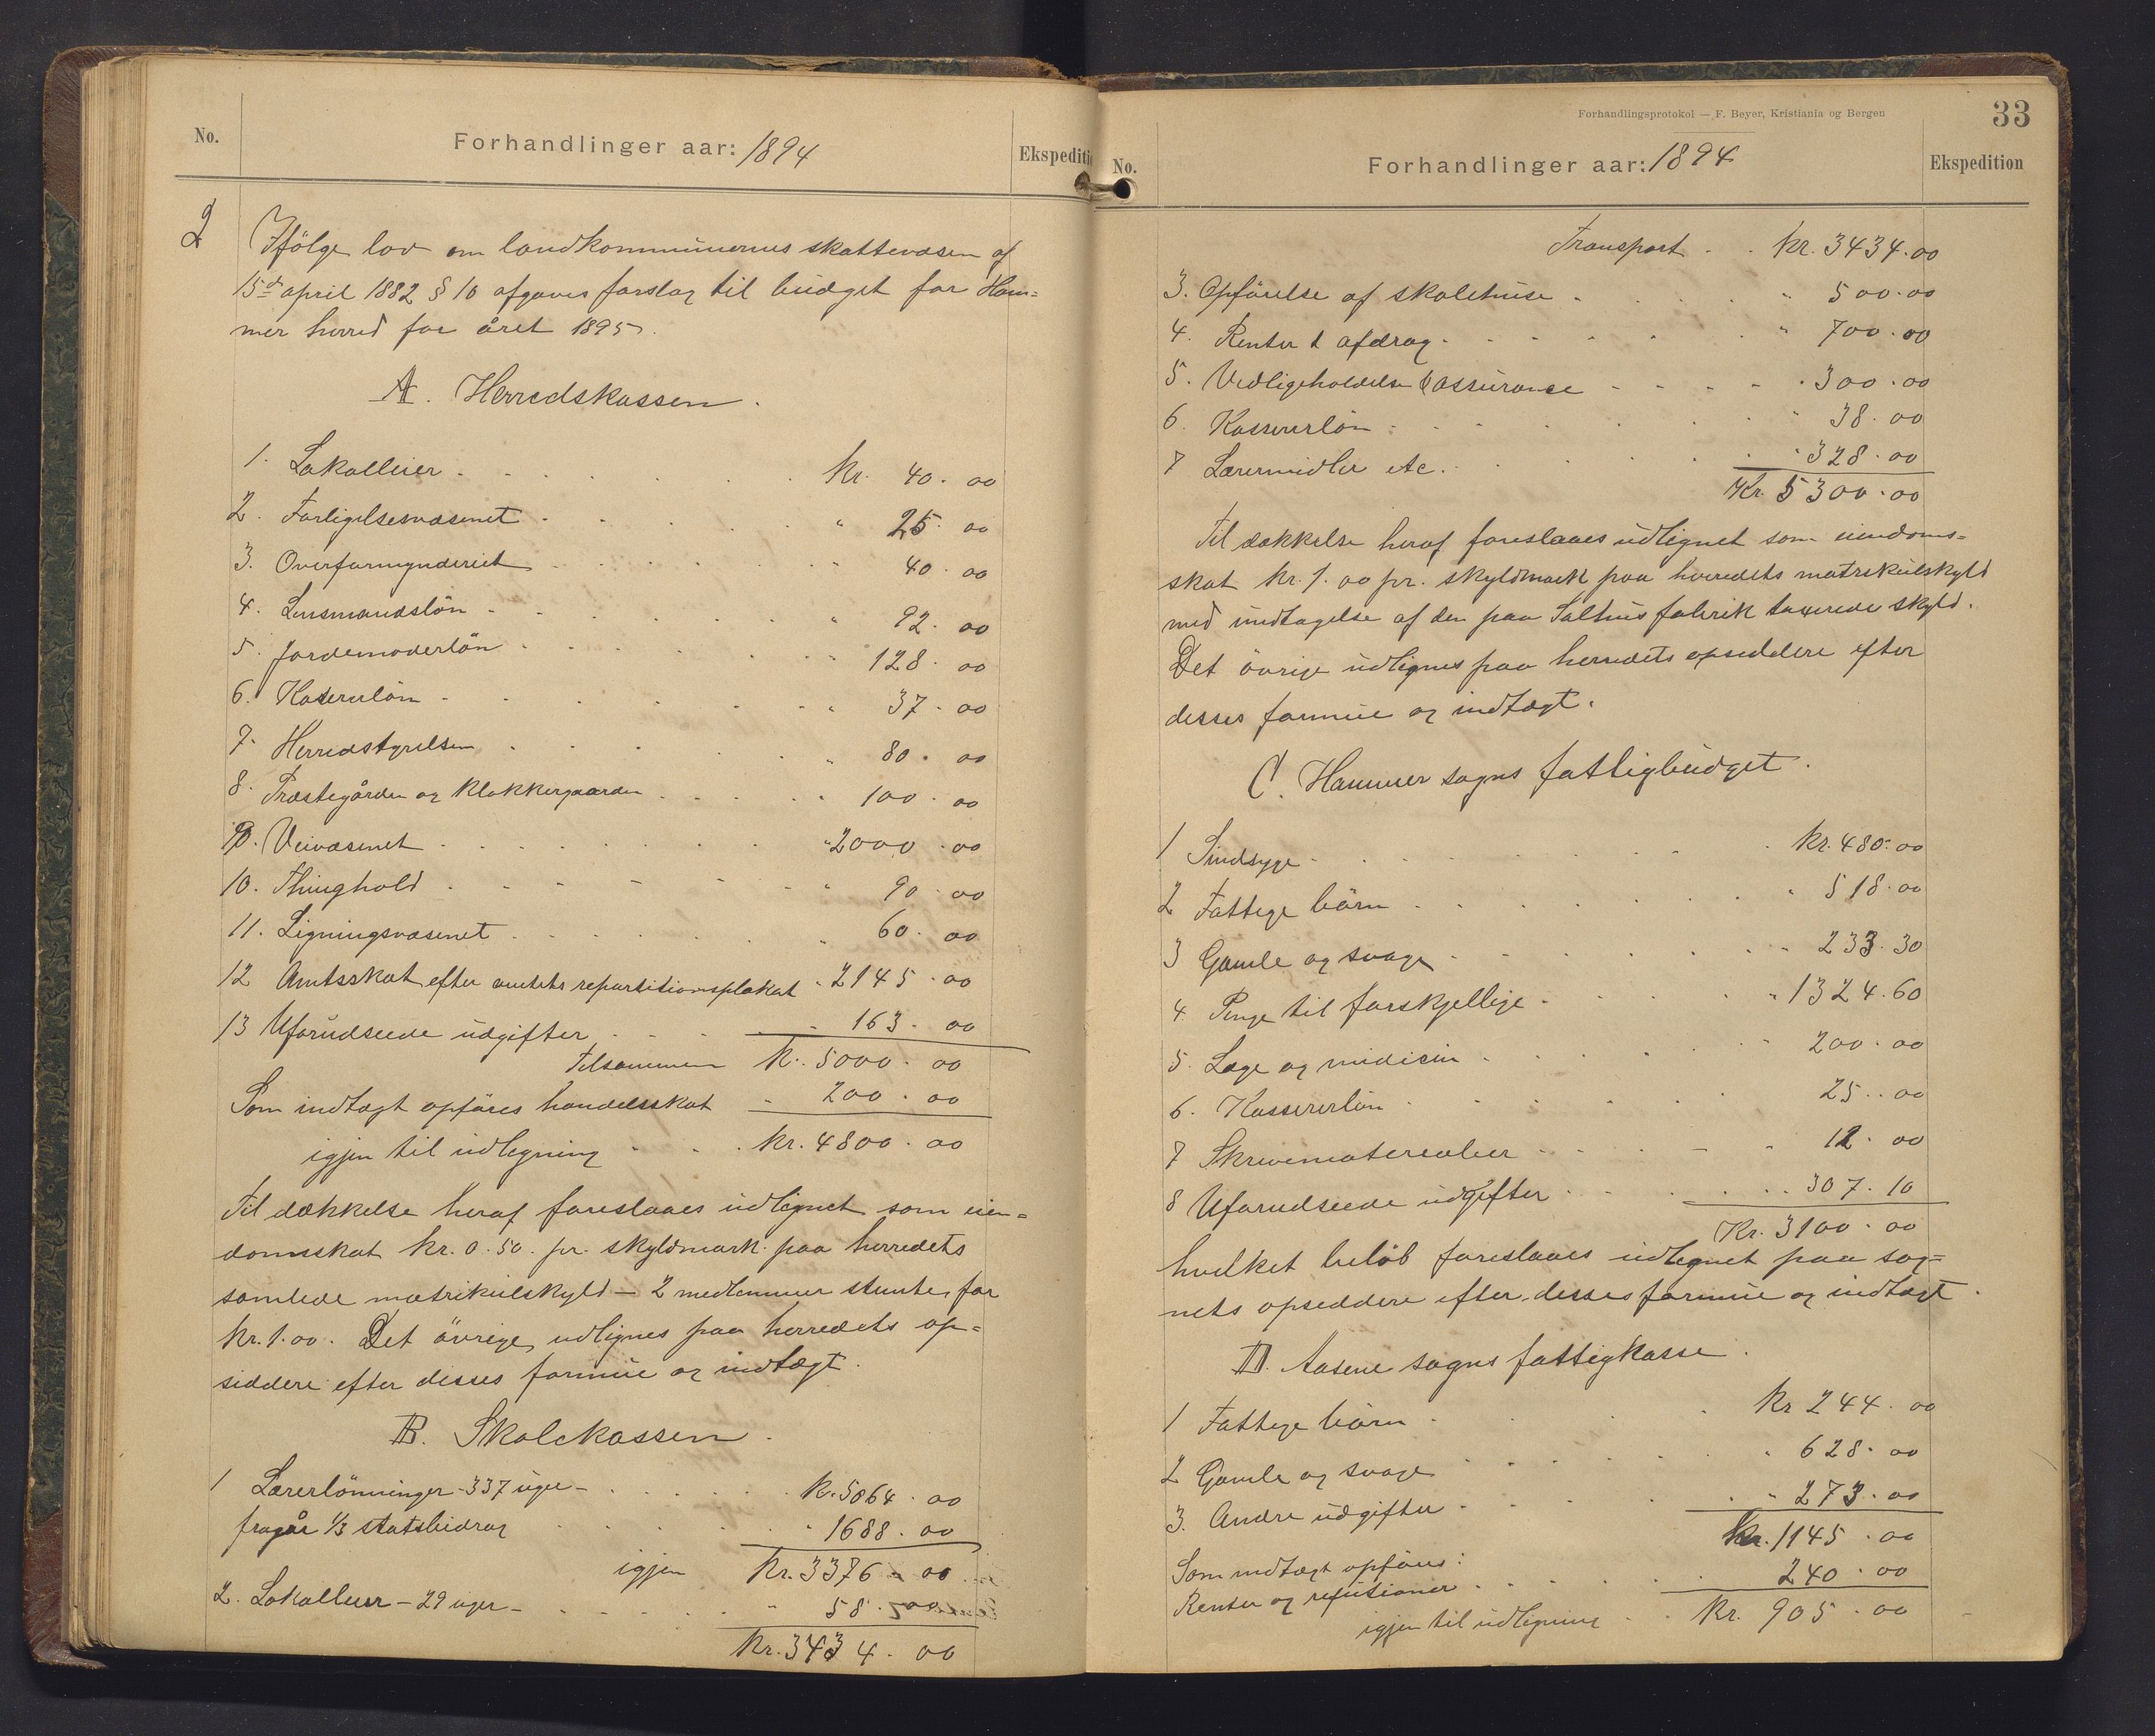 No.
Forhandlinger aar: 1894
Ekspediti
2
Ifölge lov om landkommunernes skattevæsen af
15de april 1882 § 10 afgaves forslag til budget for Ham=
mer herred for året 1895.
A. Herredskassen.
1. Lokalleier . . . . . . kr. 40. 00
2. Forligelsesvæsenet . . . . . " 25. 00
3. Overformynderiet . . . . . " 40. 00
4. Lensmandslön . . . . . . " 92. 00
5. Jordemoderlön . . . . . . " 128. 00
6. Kassererlön . . . . . . " 37. 00
7. Herredstyrelsen . . . . . " 80. 00
8. Præstegården og Klokkergaarden . . . . " 100. 00
9. Veivæsenet . . . . . . . "2000. 00
10. Thinghold . . . . . . " 90. 00
11. Ligningsvæsenet . . . . . " 60. 00
12 Amtsskat efter amtets repartitionsplakat " 2145. 00
13 Uforudseede udgifter . . . . " 163. 00
Tilsammen kr. 5000. 00
Som indtægt opföres handelsskat " 200. 00
igjen til udligning . . . kr. 4800. 00
Til dækkelse heraf foreslaaes udlignet som eien=
domsskat kr. 0.50. pr. skyldmark paa herredets
samlede matrikulskyld – 2 medlemmer stemte for
kr. 1.00. Det övrige udlignes paa herredets op=
siddere efter disses formue og indtægt.
B. Skolekassen.
1 Lærerlönninger – 337 uger – . . . . . kr. 5064. 00
fragår 1/3 statsbidrag . . . . . " 1688. 00
igjen kr. 3376. 00
2. Lokalleier – 29 uger – . . . . . " 58. 00
kr. 3434. 00
Forhandlingsprotokol — F. Beyer, Kristiania og Bergen
33
No.
Forhandlinger aar: 1894
Ekspedition
Transport . . kr. 3434. 00
3. Opförelse af skolehuse . . . . " 500. 00
4. Renter & afdrag . . . . . " 700. 00
5. Vedligeholdelse & assurance . . . . . 300. 00
6. Kassererlön . . . . . . " 38. 00
7 Læremidler etc. . . . . . " 328. 00
Kr. 5300. 00
Til dækkelse heraf foreslaaes udlignet som eiendoms=
skat kr. 1.00 pr. skyldmark paa herredets matrikulskyld
med undtagelse af den paa Salhus fabrik taxerede skyld.
Det övrige udlignes paa herredets opsiddere efter
disses formue og indtægt.
C. Hammer sogns fattigbudget.
1 Sindsyge . . . . . . . kr. 480. 00
2 Fattige börn . . . . . . " 518. 00
3 Gamle og svage . . . . . . " 233. 30
4. Penge til forskjellige . . . . " 1324. 60
5. Læge og medicin . . . . . " 200. 00
6. Kassererlön . . . . . . 25. 00
7 Skrivematerialier . . . . . " 12. 00
8 Uforudseede udgifter . . . . . . 307. 10
Kr. 3100. 00
hvilket belöb foreslaaes udlignet paa sog=
nets opsiddere efter disses formue og indtægt.
D. Aasene sogns fattigkasse.
1 Fattige börn . . . . kr 244. 00
2 Gamle og svage . . . . . " 628. 00
3. Andre udgifter . . . . . " 273. 00
kr. 1145. 00
Som indtægt opföres:
Renter og refusioner . . . . . 240. 00
igjen til udligning . . kr. 905. 00